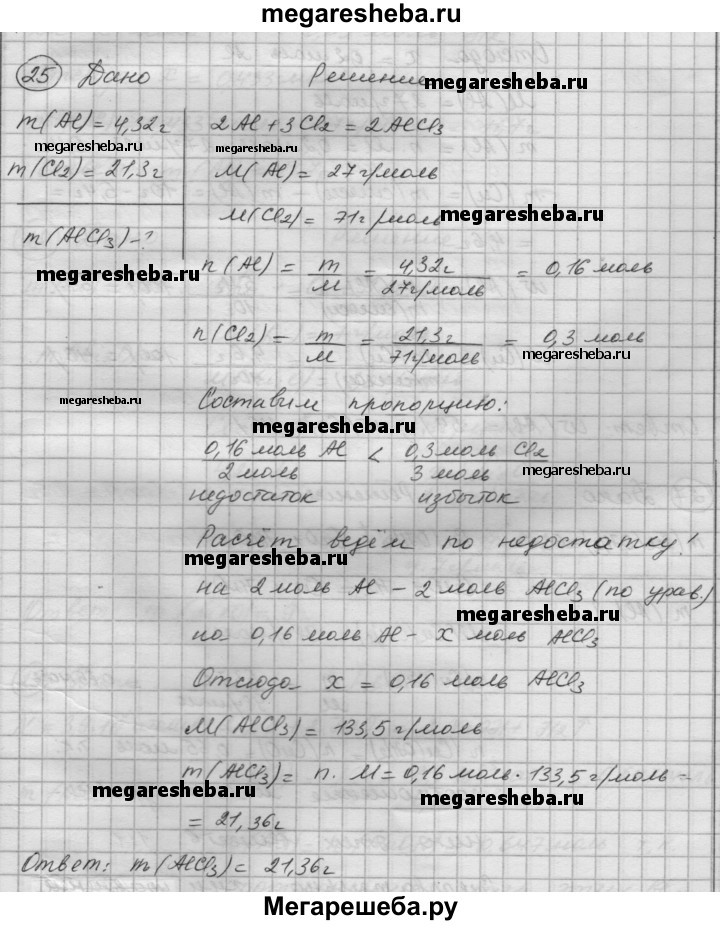 megaresheba.ru
25 Дано Решение
megaresheba.ru
m(Al) = 4,32г 2Al + 3Cl2 = 2AlCl3
megaresheba.ru megaresheba.ru
m(Cl2) = 21,3г M(Al) = 27г/моль
M(Cl2) = 71г/моль megaresheba.ru
m(AlCl3) - ?
megaresheba.ru
n(Al) = m/M = 4,32г/27г/моль = 0,16 моль
n(Cl2) = m/M = 21,3г/71г/моль = 0,3 моль
megaresheba.ru
megaresheba.ru
Составим пропорцию:
megaresheba.ru
0,16 моль Al / 2 моль < 0,3 моль Cl2 / 3 моль
megaresheba.ru
недостаток избыток
Расчёт ведём по недостатку!
megaresheba.ru
на 2 моль Al - 2 моль AlCl3 (по урав.)
megaresheba.ru
на 0,16 моль Al - x моль AlCl3
Отсюда x = 0,16 моль AlCl3
M(AlCl3) = 133,5 г/моль
m(AlCl3) = n · M = 0,16 моль · 133,5 г/моль =
megaresheba.ru megaresheba.ru
= 21,36г
Ответ: m(AlCl3) = 21,36г
Мегарешеба.ру